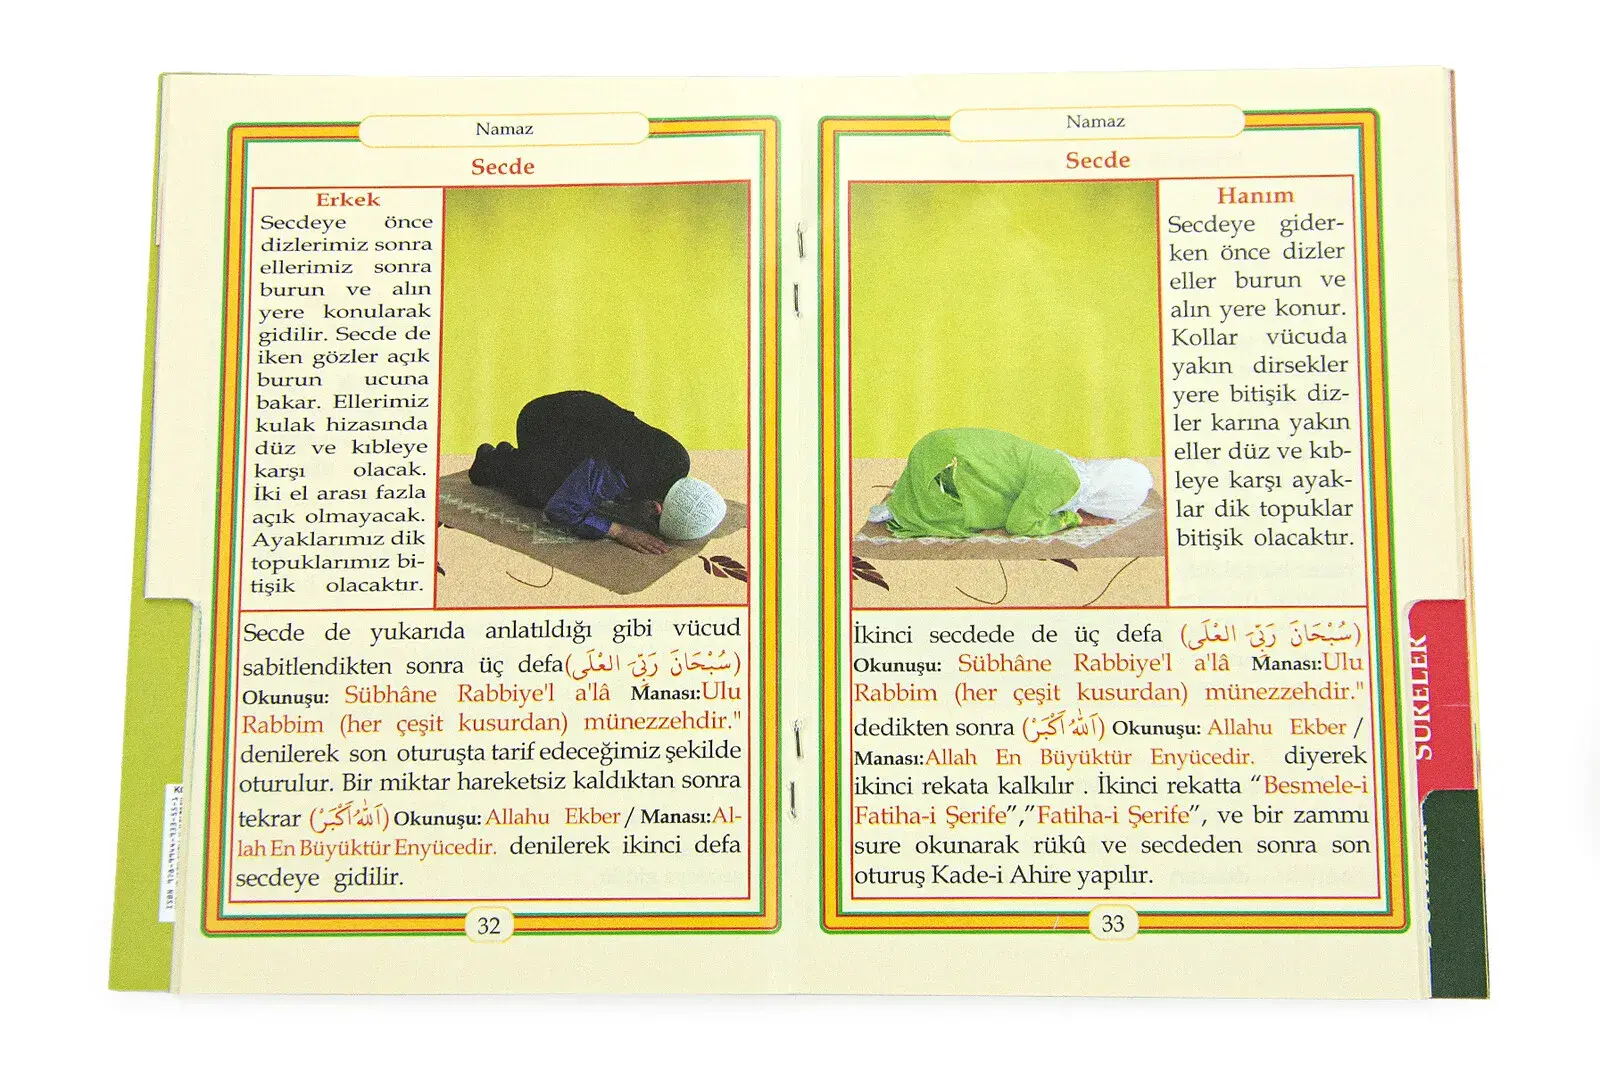 Namaz
Secde
Erkek
Secdeye önce
dizlerimiz sonra
ellerimiz sonra
burun ve alın
yere konularak
gidilir. Secde de
iken gözler açık
burun ucuna
bakar. Ellerimiz
kulak hizasında
düz ve kıbleye
karşı olacak.
İki el arası fazla
açık olmayacak.
Ayaklarımız dik
topuklarımız bi-
tişik olacaktır.
Secde de yukarıda anlatıldığı gibi vücud
sabitlendikten sonra üç defa(سُبْحَانَ رَبِّيَ الْعْلَى)
Okunuşu: Sübhâne Rabbiye'l a'lâ Manası:Ulu
Rabbim (her çeşit kusurdan) münezzehdir."
denilerek son oturuşta tarif edeceğimiz şekilde
oturulur. Bir miktar hareketsiz kaldıktan sonra
tekrar (اَللّٰهُ اَكْبَرُ) Okunuşu: Allahu Ekber / Manası:Al-
lah En Büyüktür Enyücedir. denilerek ikinci defa
secdeye gidilir.
32
Namaz
Secde
Hanım
Secdeye gider-
ken önce dizler
eller burun ve
alın yere konur.
Kollar vücuda
yakın dirsekler
yere bitişik diz-
ler karına yakın
eller düz ve kıb-
leye karşı ayak-
lar dik topuklar
bitişik olacaktır.
İkinci secdede de üç defa (سُبْحَانَ رَبِّيَ الْعْلَى)
Okunuşu: Sübhâne Rabbiye'l a'lâ Manası:Ulu
Rabbim (her çeşit kusurdan) münezzehdir."
dedikten sonra (اَللّٰهُ اَكْبَرُ) Okunuşu: Allahu Ekber /
Manası:Allah En Büyüktür Enyücedir. diyerek
ikinci rekata kalkılır . İkinci rekatta “Besmele-i
Fatiha-i Şerife”,”Fatiha-i Şerife”, ve bir zammı
sure okunarak rükû ve secdeden sonra son
oturuş Kade-i Ahire yapılır.
33
SURELER